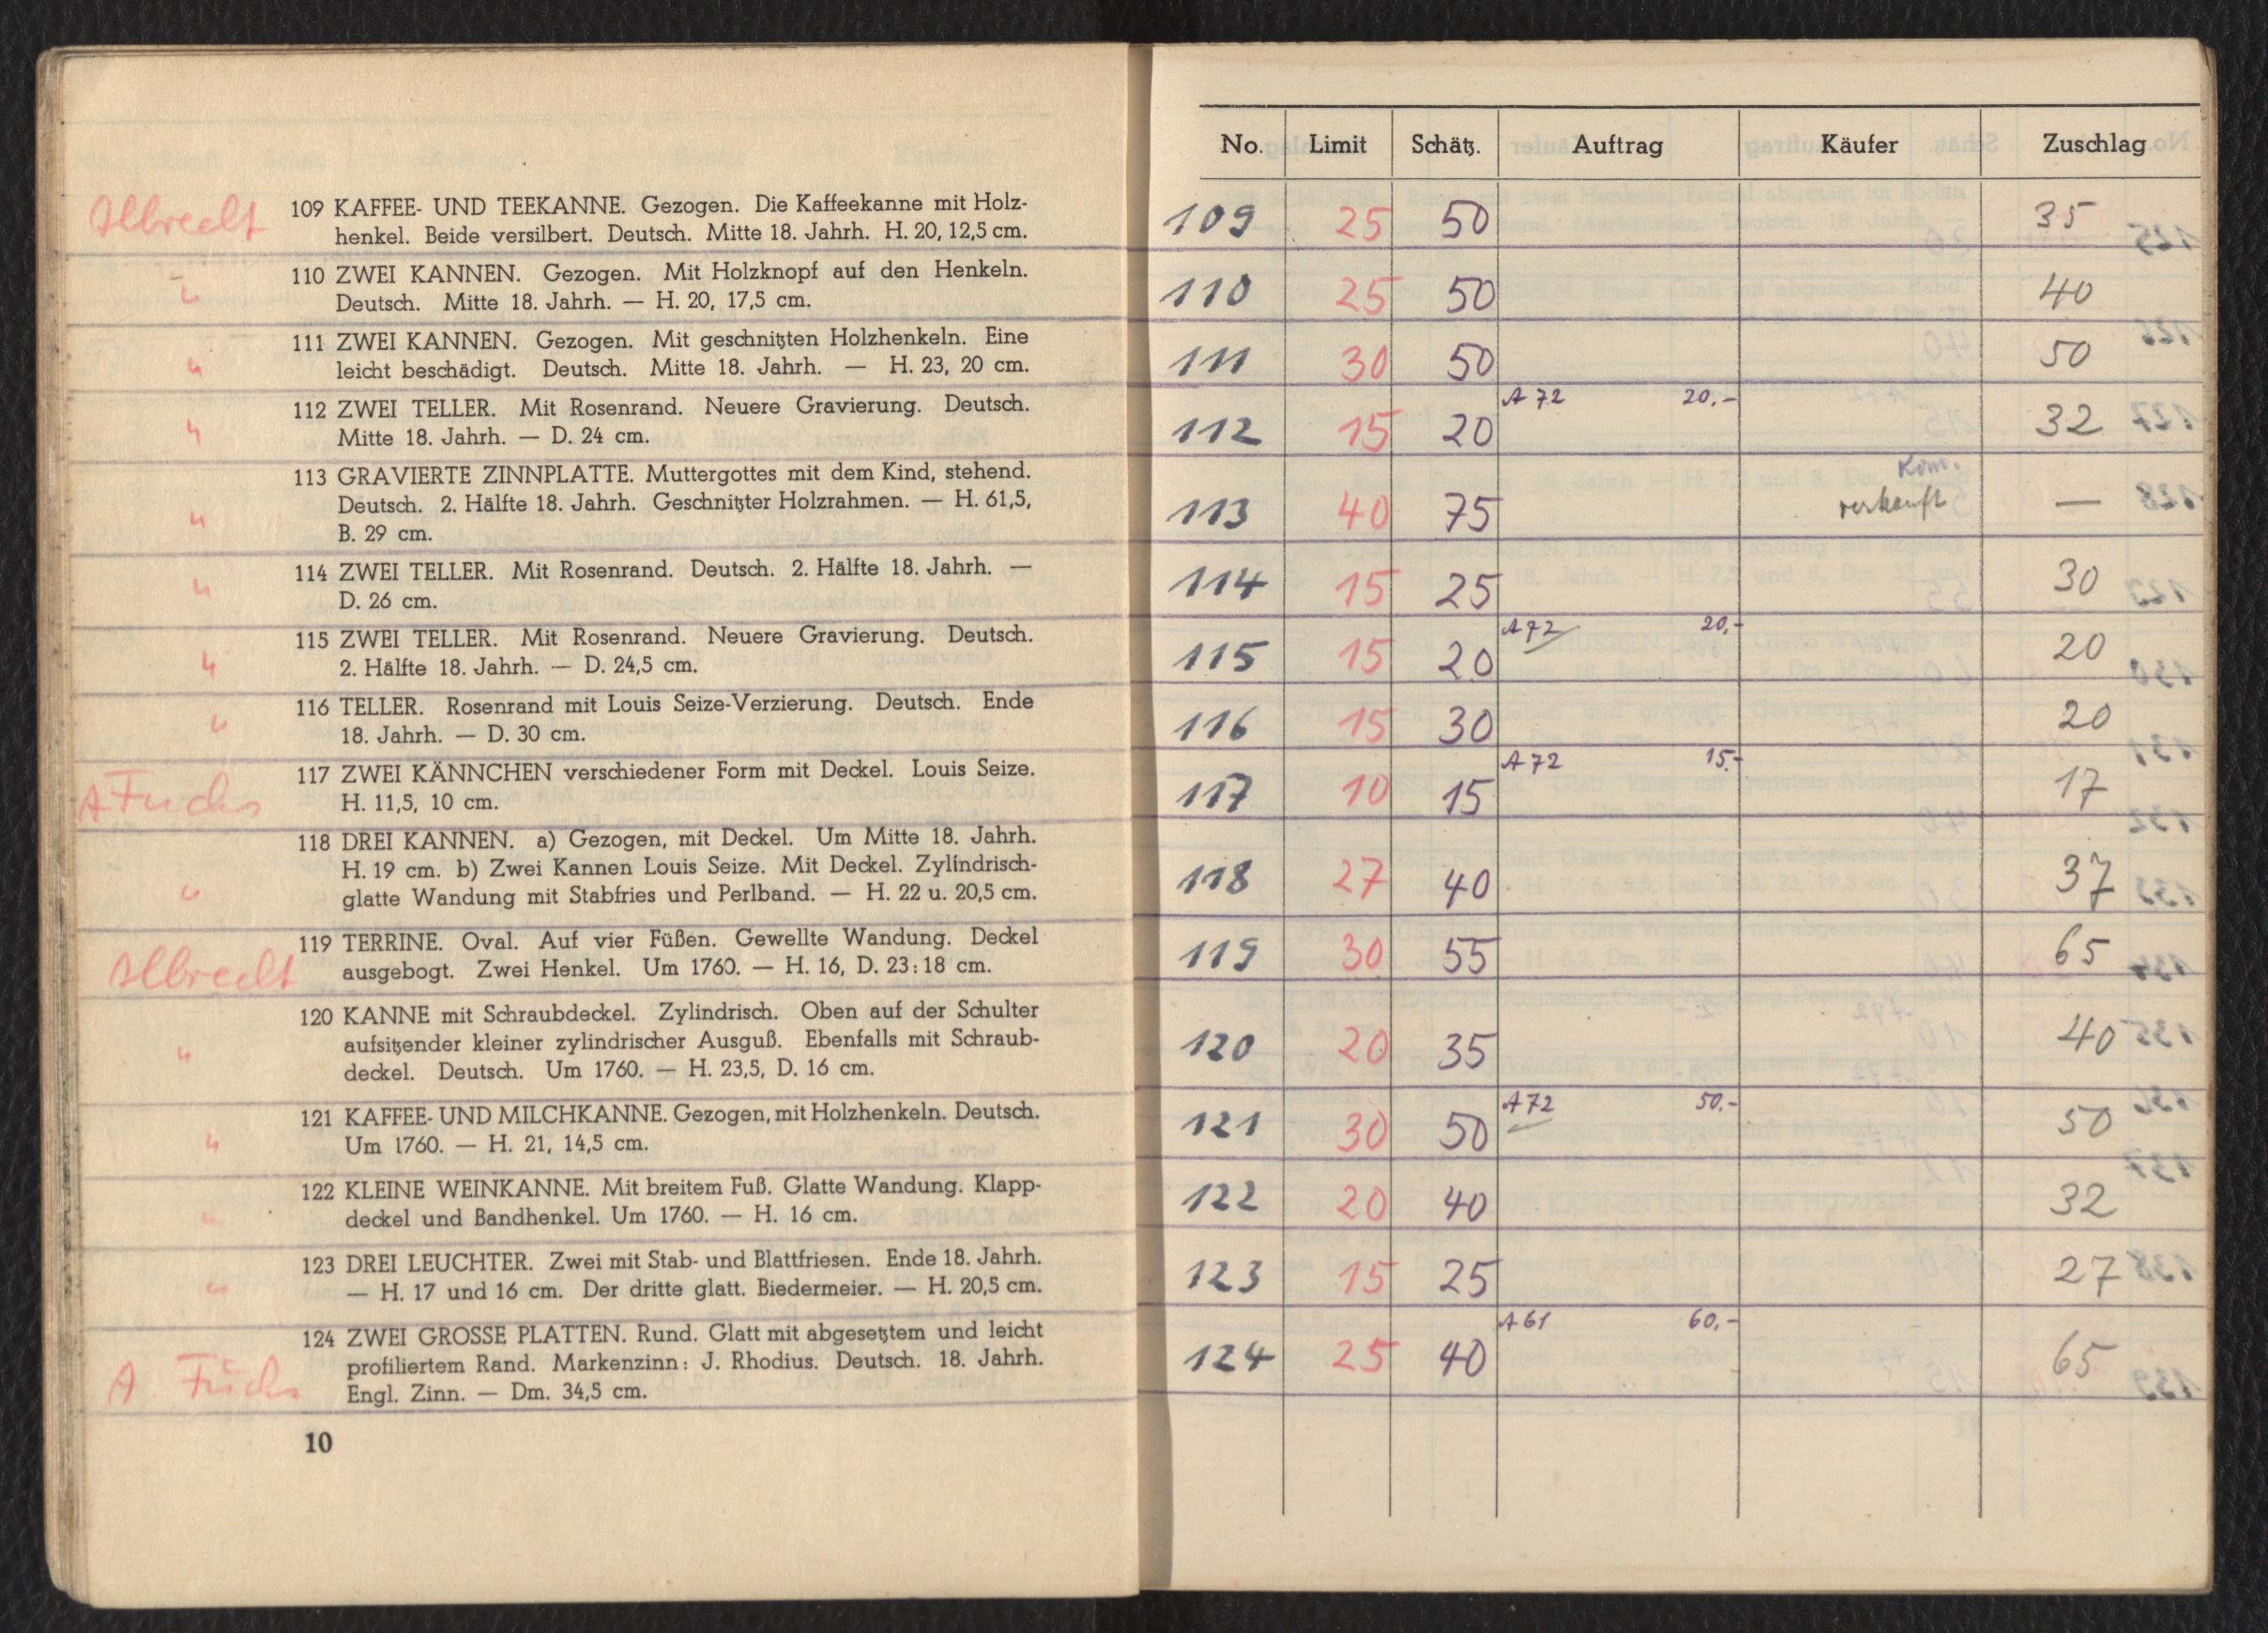 Albrecht
109 KAFFEE- UND TEEKANNE. Gezogen. Die Kaffeekanne mit Holz-
henkel. Beide versilbert. Deutsch. Mitte 18. Jahrh. H. 20, 12,5 cm.
"
110 ZWEI KANNEN. Gezogen. Mit Holzknopf auf den Henkeln.
Deutsch. Mitte 18. Jahrh. — H. 20, 17,5 cm.
"
111 ZWEI KANNEN. Gezogen. Mit geschnitzten Holzhenkeln. Eine
leicht beschädigt. Deutsch. Mitte 18. Jahrh. — H. 23, 20 cm.
"
112 ZWEI TELLER. Mit Rosenrand. Neuere Gravierung. Deutsch.
Mitte 18. Jahrh. — D. 24 cm.
"
113 GRAVIERTE ZINNPLATTE. Muttergottes mit dem Kind, stehend.
Deutsch. 2. Hälfte 18. Jahrh. Geschnitzter Holzrahmen. — H. 61,5,
B. 29 cm.
"
114 ZWEI TELLER. Mit Rosenrand. Deutsch. 2. Hälfte 18. Jahrh. —
D. 26 cm.
"
115 ZWEI TELLER. Mit Rosenrand. Neuere Gravierung. Deutsch.
2. Hälfte 18. Jahrh. — D. 24,5 cm.
"
116 TELLER. Rosenrand mit Louis Seize-Verzierung. Deutsch. Ende
18. Jahrh. — D. 30 cm.
A Fuchs
117 ZWEI KÄNNCHEN verschiedener Form mit Deckel. Louis Seize.
H. 11,5, 10 cm.
"
118 DREI KANNEN. a) Gezogen, mit Deckel. Um Mitte 18. Jahrh.
H. 19 cm. b) Zwei Kannen Louis Seize. Mit Deckel. Zylindrisch-
glatte Wandung mit Stabfries und Perlband. — H. 22 u. 20,5 cm.
Albrecht
119 TERRINE. Oval. Auf vier Füßen. Gewellte Wandung. Deckel
ausgebogt. Zwei Henkel. Um 1760. — H. 16, D. 23:18 cm.
"
120 KANNE mit Schraubdeckel. Zylindrisch. Oben auf der Schulter
aufsitzender kleiner zylindrischer Ausguß. Ebenfalls mit Schraub-
deckel. Deutsch. Um 1760. — H. 23,5, D. 16 cm.
"
121 KAFFEE- UND MILCHKANNE. Gezogen, mit Holzhenkeln. Deutsch.
Um 1760. — H. 21, 14,5 cm.
"
122 KLEINE WEINKANNE. Mit breitem Fuß. Glatte Wandung. Klapp-
deckel und Bandhenkel. Um 1760. — H. 16 cm.
"
123 DREI LEUCHTER. Zwei mit Stab- und Blattfriesen. Ende 18. Jahrh.
— H. 17 und 16 cm. Der dritte glatt. Biedermeier. — H. 20,5 cm.
A Fuchs
124 ZWEI GROSSE PLATTEN. Rund. Glatt mit abgesetztem und leicht
profiliertem Rand. Markenzinn: J. Rhodius. Deutsch. 18. Jahrh.
Engl. Zinn. — Dm. 34,5 cm.
10
No. Limit Schätz. Auftrag Käufer Zuschlag
109 25 50 35
110 25 50 40
111 30 50 50
A 72 20,-
112 15 20 32
Kom.
113 40 75 verkauft —
114 15 25 30
A 72 20,-
115 15 20 20
116 15 30 20
A 72 15.-
117 10 15 17
118 27 40 37
119 30 55 65
120 20 35 40
A 72 50.-
121 30 50 50
122 20 40 32
123 15 25 27
A 61 60,-
124 25 40 65